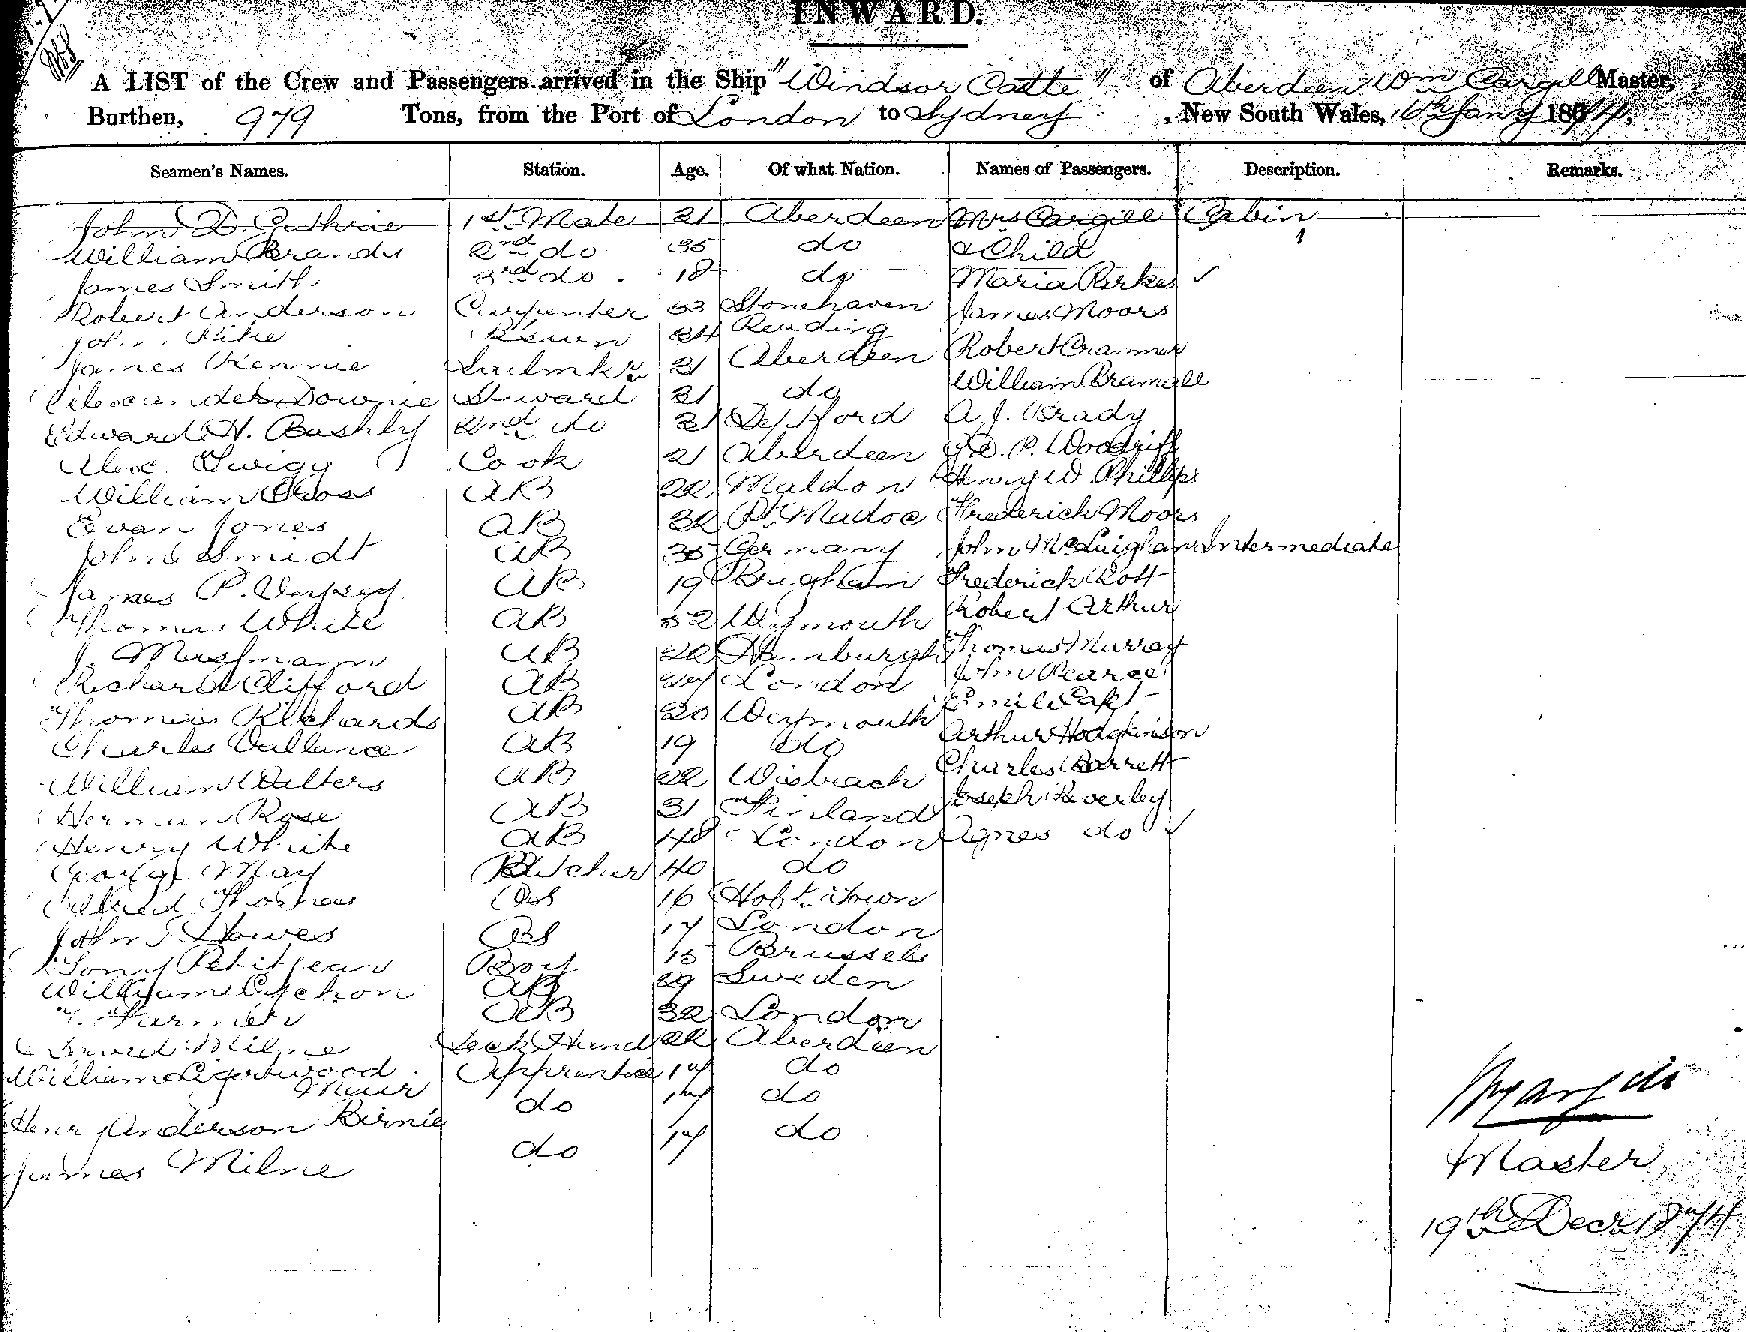 INWARD.
A LIST of the Crew and Passengers arrived in the Ship "Windsor Castle" of Aberdeen Wm Cargill Master,
Burthen, 979 Tons, from the Port of London to Sydney, New South Wales, Jany 1874.
Seamen's Names. Station. Age. Of what Nation. Names of Passengers. Description. Remarks.
John D. Guthrie 1st Mate 21 Aberdeen Mrs Cargill Cabin
William Brands 2nd do 35 do & Child
James Smith 3rd do. 18 do Maria Parkes ✓
Robert Anderson Carpenter 53 Stonehaven James Moors
John Pike 24 Reading
James Rennie Sailmkr 21 Aberdeen Robert Cranmer
Alexander Downie Steward 21 do William Bramall
Edward H. Bushby 2nd do 21 Deptford A. J. Brady
Alex. Cook 21 Aberdeen P. Woodriff
William Cross AB 22 Maldon Henry W Phillips
Evan Jones AB 32 Pt. Madoc Frederick Moors
John Smidt AB 35 Germany John McGuighan Intermediate
James P. AB 19 Frederick Rott
Thomas White AB 52 Weymouth Robert Arthur
J. AB 22 Hamburgh Thomas Murray
Richard Clifford AB London John Pearce
Thomas Richards AB 20 Weymouth Emil
Charles Vallance AB 19 do Arthur Hodgkinson
William Walters AB 22 Wisbeach Charles Barrett
Herman Rose AB 31 Finland Joseph Beverley
Henry White AB 48 London Agnes do ✓
George May Butcher 40 do
Alfred Thomas OS 16 Hobt. Town
John S. Howes OS 17 London
Petitjean Boy 15 Brussels
William AB 29 Sweden
T. Farmer AB 32 London
Milne Deck Hand 22 Aberdeen
William Ligertwood Apprentice 17 do
Muir do 17 do
Henry Anderson Birnie
James Milne do 17 do
Wm Cargill
Master
19th Decr 1874